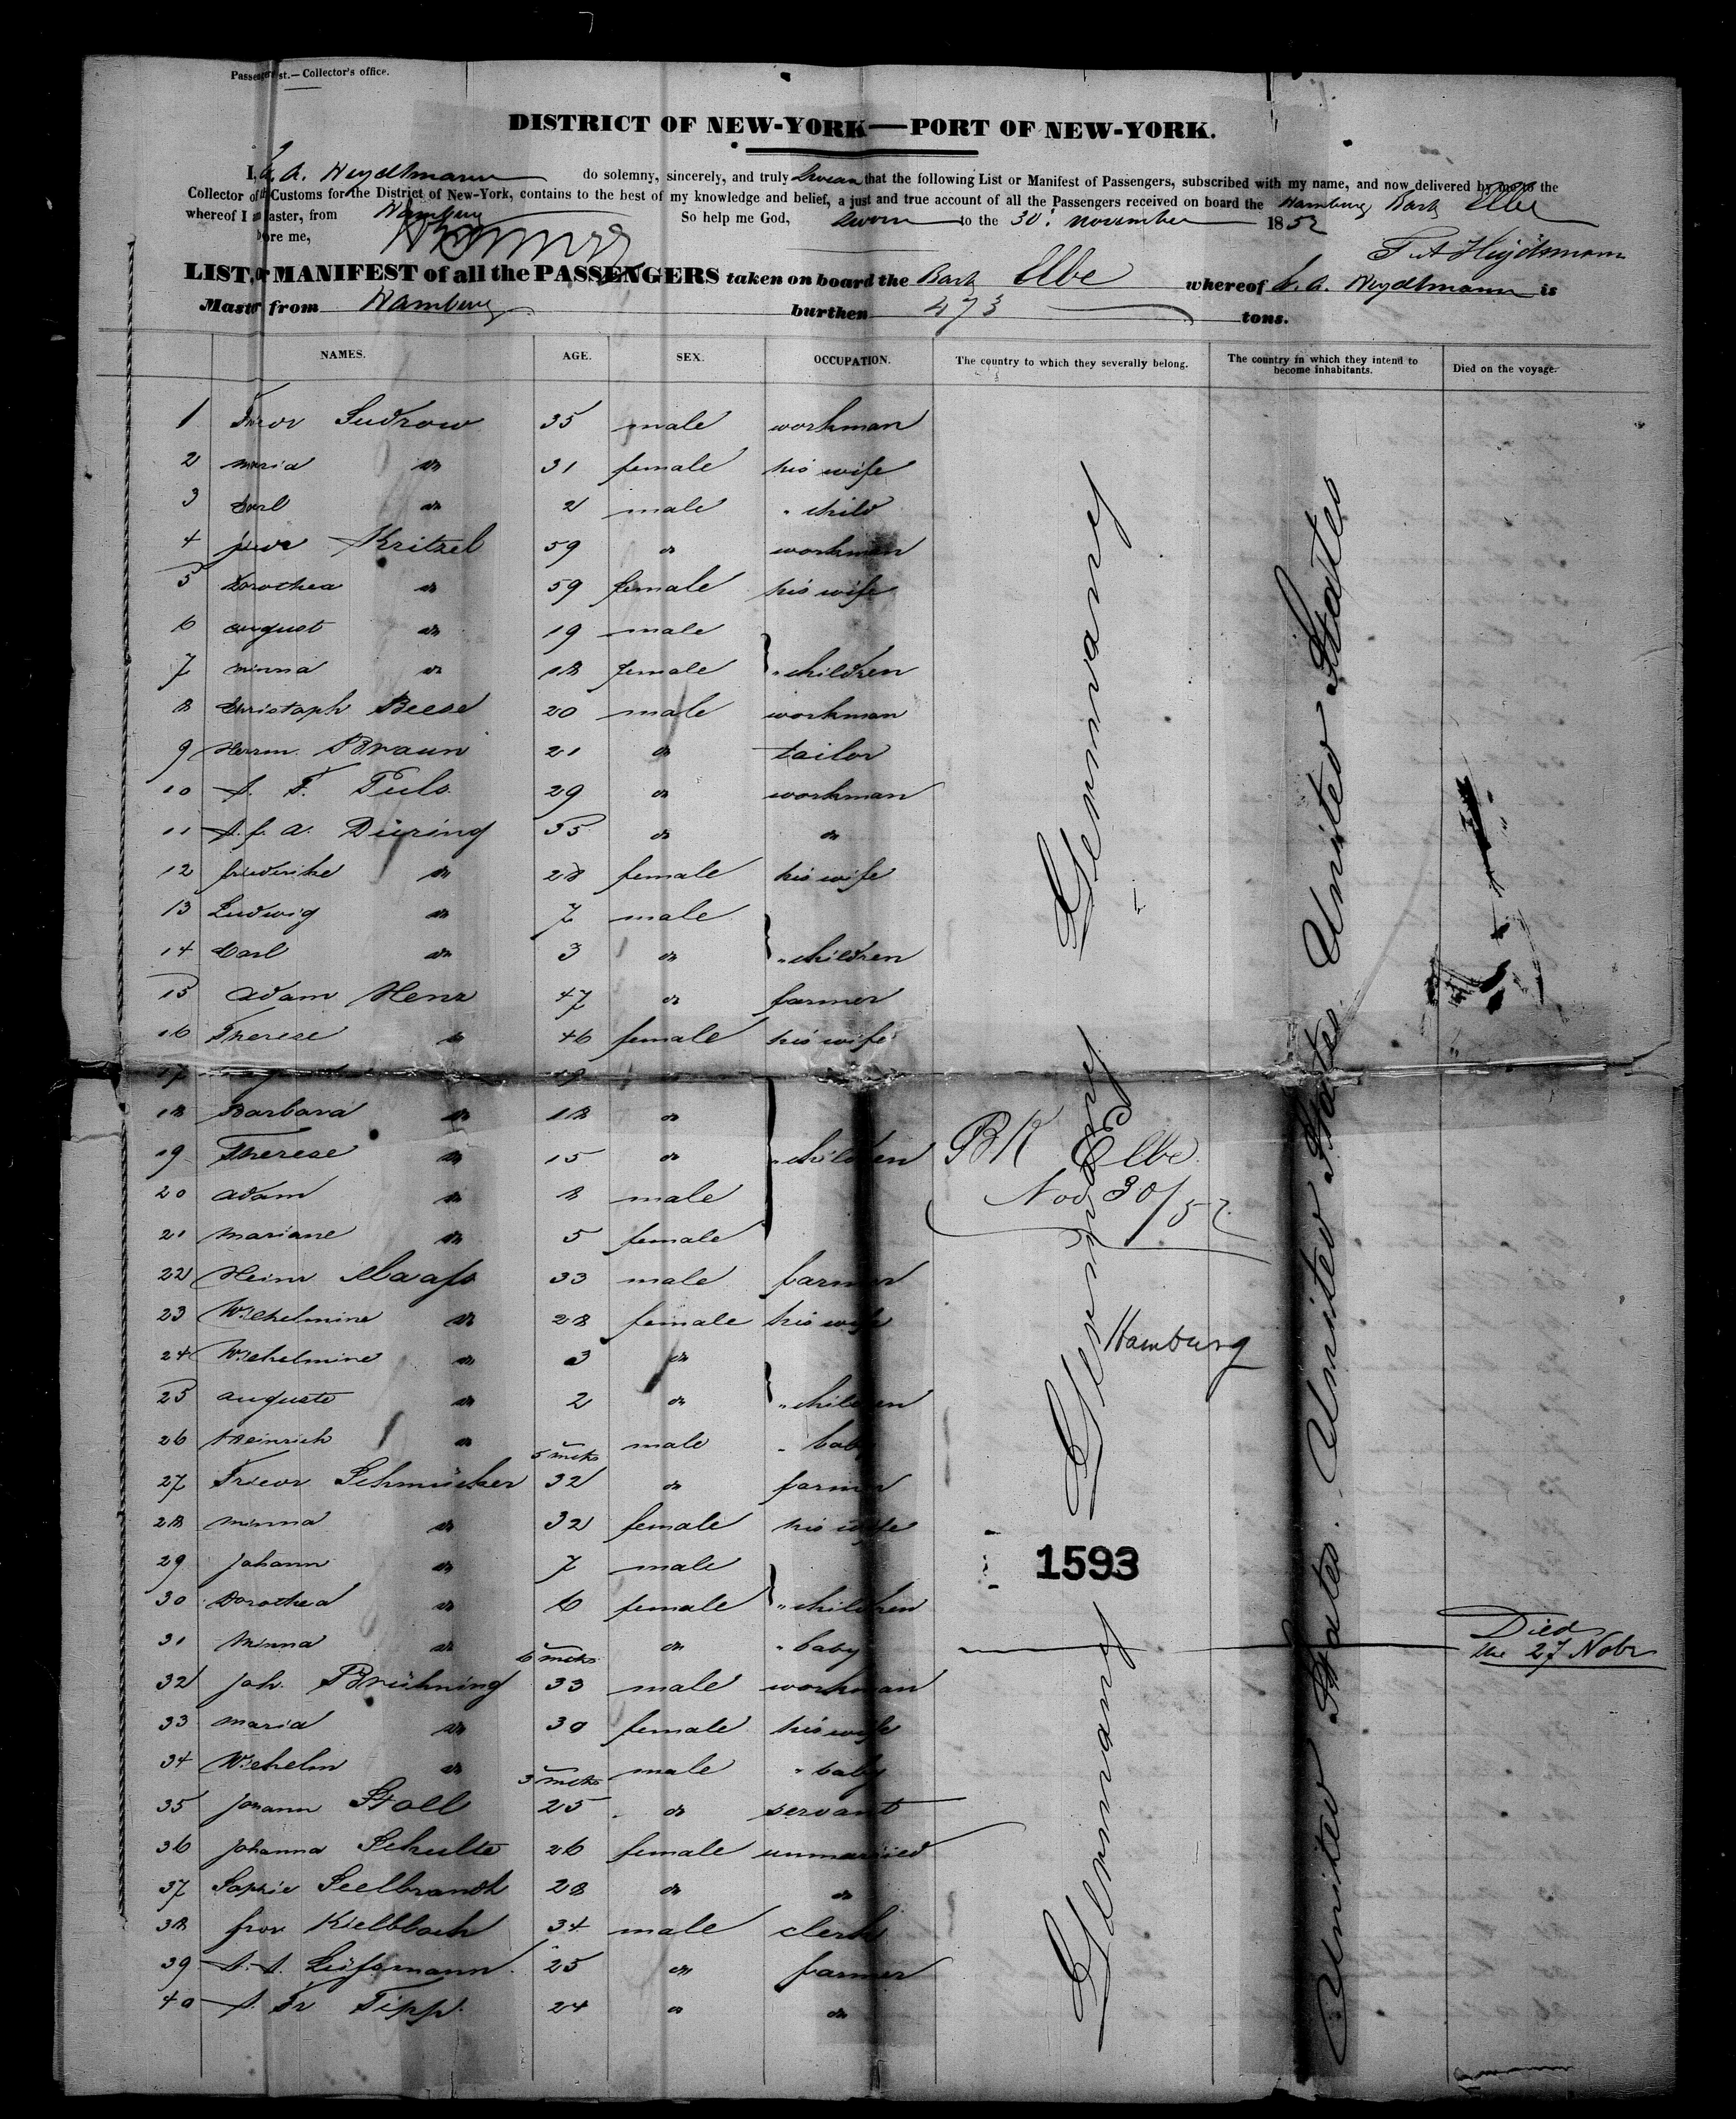 Passenger st.—Collector's office.
DISTRICT OF NEW-YORK—PORT OF NEW-YORK.
I, A. Heydtmann do solemny, sincerely, and truly Swear that the following List or Manifest of Passengers, subscribed with my name, and now delivered by me to the
Collector of the Customs for the District of New-York, contains to the best of my knowledge and belief, a just and true account of all the Passengers received on board the Hamburg Bark Elbe
whereof I am aster, from Hamburg So help me God, Sworn to the 30. november 1852
ore me,
Heydtmann
LIST, or MANIFEST of all the PASSENGERS taken on board the Bark Elbe whereof A. Heydtmann is
Mast from Hamburg burthen 473 tons.
NAMES. AGE. SEX. OCCUPATION. The country to which they severally belong. The country in which they intend to become inhabitants. Died on the voyage.
1 Sudrow 35 male workman
2 maria do 31 female his wife
3 Carl do 2 male " child
4 Kritzel 59 do workman
5 Dorothea do 59 female his wife
6 august do 19 male
7 minna do 18 female " children
8 Christoph Beese 20 male workman
9 Herrm. Braun 21 do tailor
10 F. Puls 29 do workman
11 Düring 35 do do
12 friederike do 28 female his wife
13 Ludwig do 7 male
14 Carl do 3 do " children
15 adam Henz 47 do farmer
16 Therese do 46 female his wife
17
18 Barbara do 18 do
19 Therese do 15 do " children
20 adam do 8 male
21 mariane do 5 female
22 Heinr Maass 33 male farmer
23 Wilhelmine do 28 female his wife
24 Wilhelmine do 3 do
25 auguste do 2 do " children
26 Heinrich do 5 mths male " baby
27 Friedr Schmücker 32 do farmer
28 minna do 32 female his wife
29 Johann do 7 male
30 Dorothea do 6 female " children
31 Minna do 6 mths do " baby Died the 27 Nobr
32 Joh. Brühning 33 male workman
33 maria do 30 female his wife
34 Wilhelm do 3 mths male " baby
35 Johann Stoll 25 do servant
36 Johanna Schulte 26 female unmarried
37 Sophie Seelbrandt 28 do do
38 Kielbloch 34 male clerk
39 Lüssmann 25 do farmer
40 Fr Tipp. 24 do do
Germany
Germany
Germany
United States
United States.
United States.
BK Elbe
Nov 30/52
Hamburg
1593